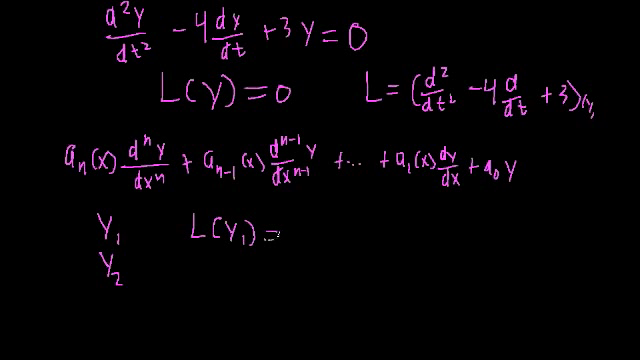 d²y/dt² - 4 dy/dt + 3y = 0
L(y) = 0    L = (d²/dt² - 4 d/dt + 3)(y)
aₙ(x) dⁿy/dxⁿ + aₙ₋₁(x) dⁿ⁻¹y/dxⁿ⁻¹ + ... + a₁(x) dy/dx + a₀y
y₁    L(y₁) =
y₂